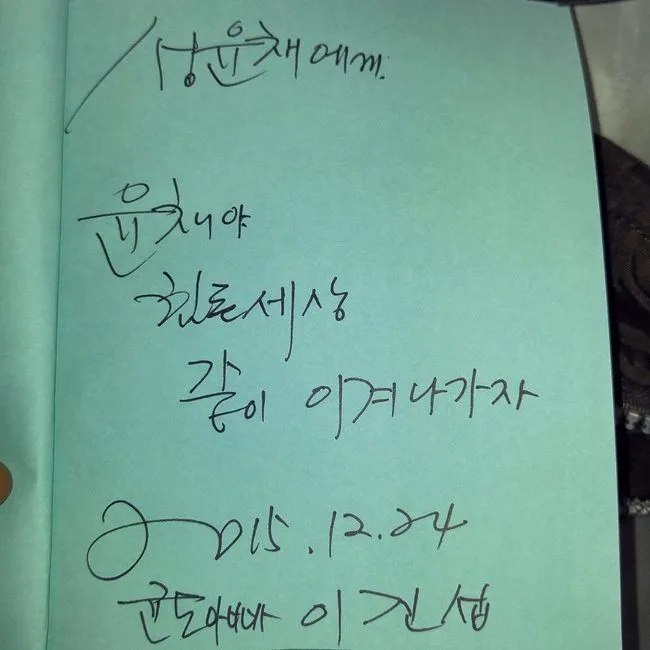 성윤채에게.
윤채야
힘든세상
같이 이겨나가자
2015.12.24
균도아빠 이진섭